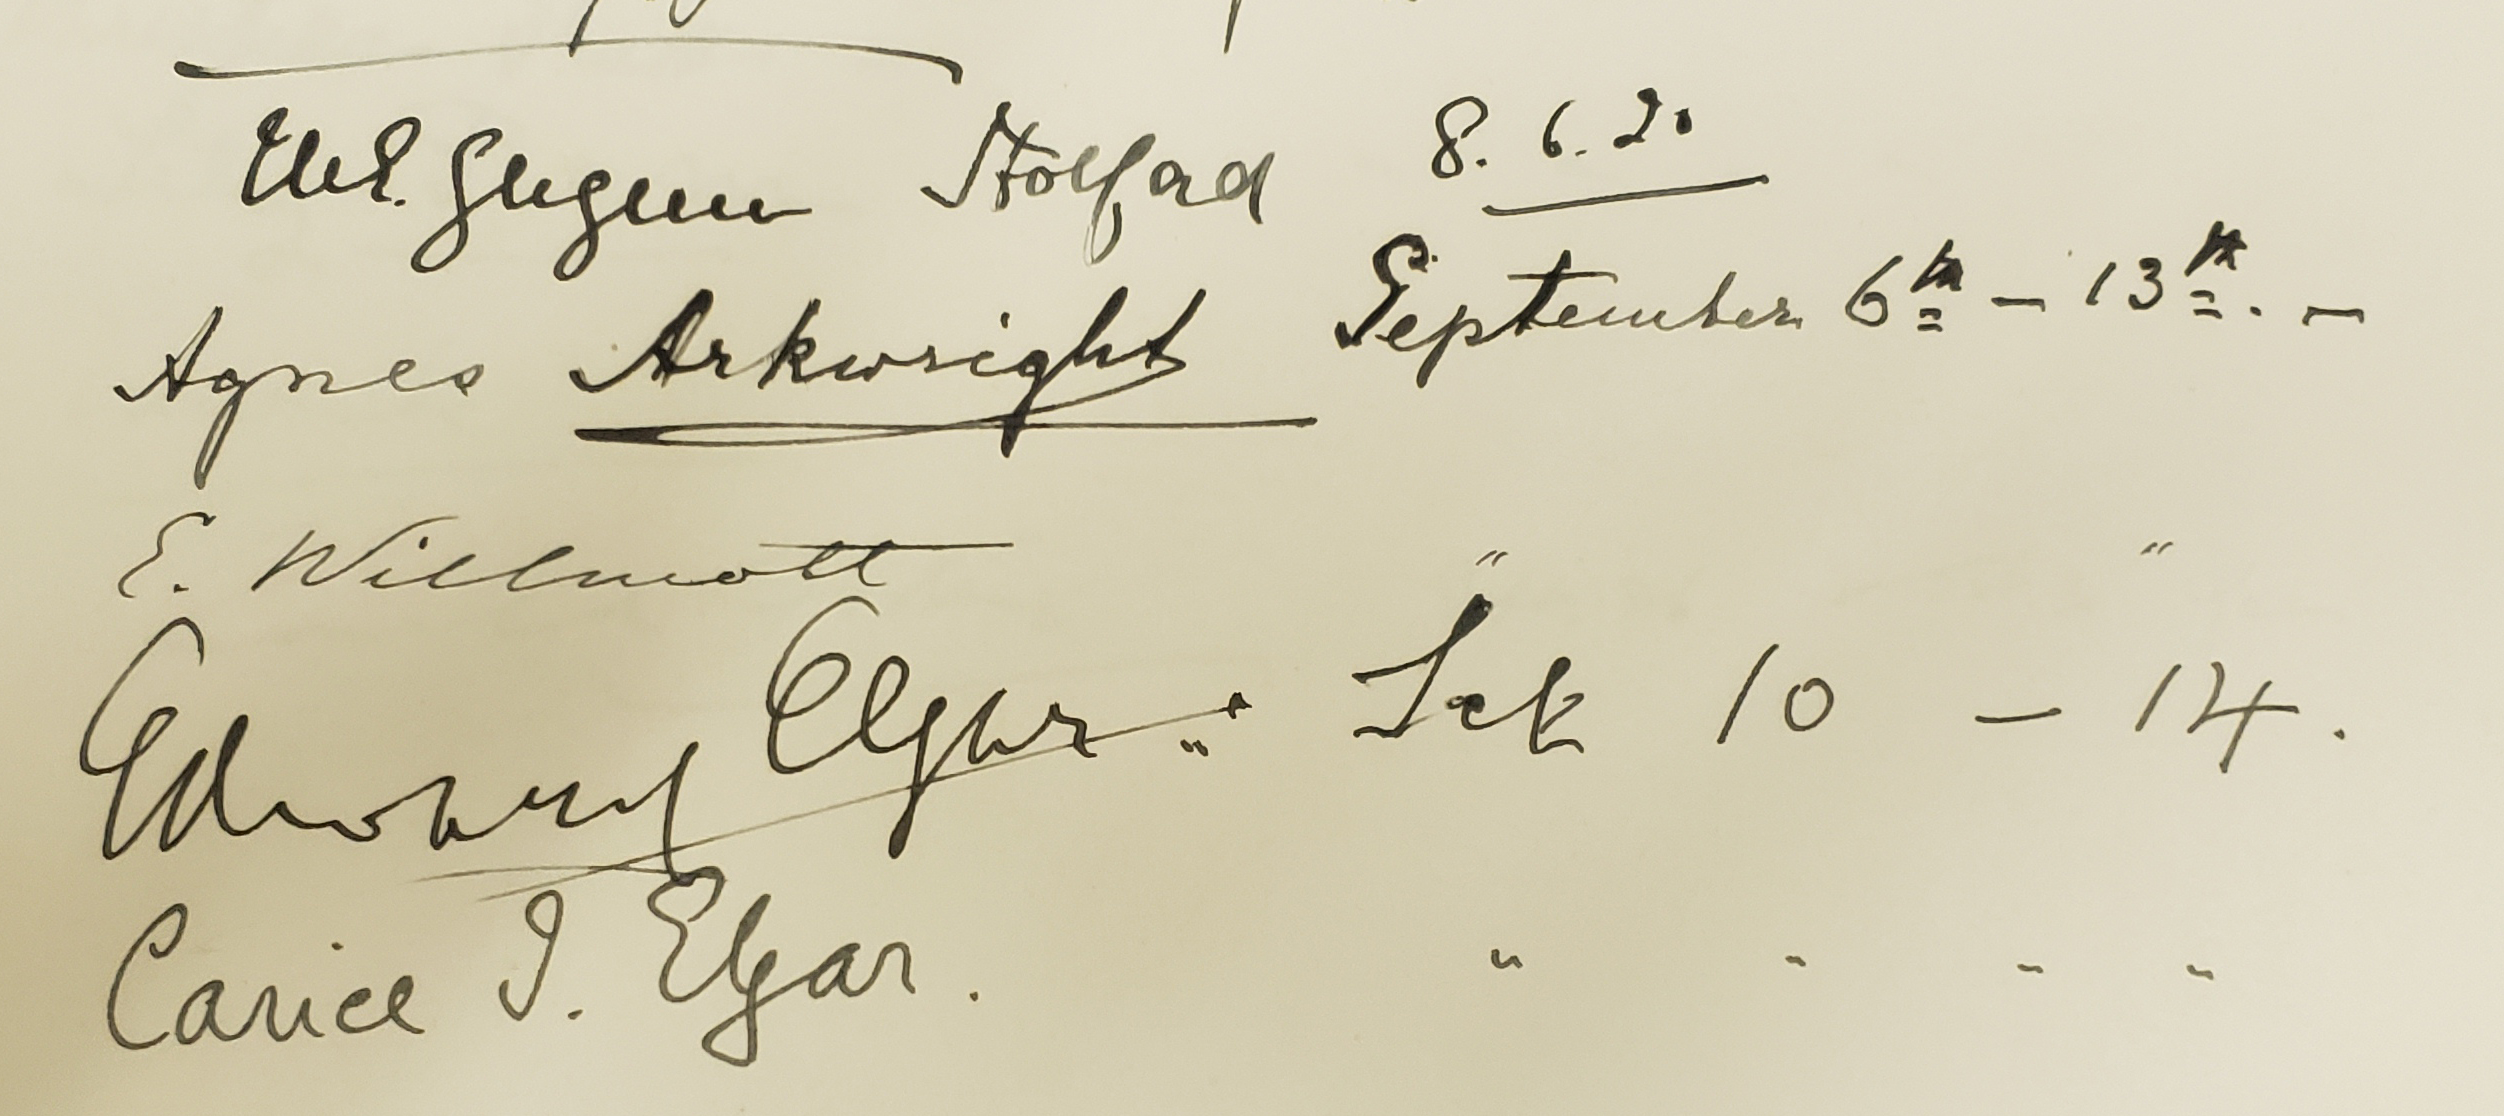 Holford 8.6.20
Agnes Arkwright September 6th - 13th. -
E. Willmott " "
Edward Elgar " Sept 10 - 14.
Carice I. Elgar. " " " "